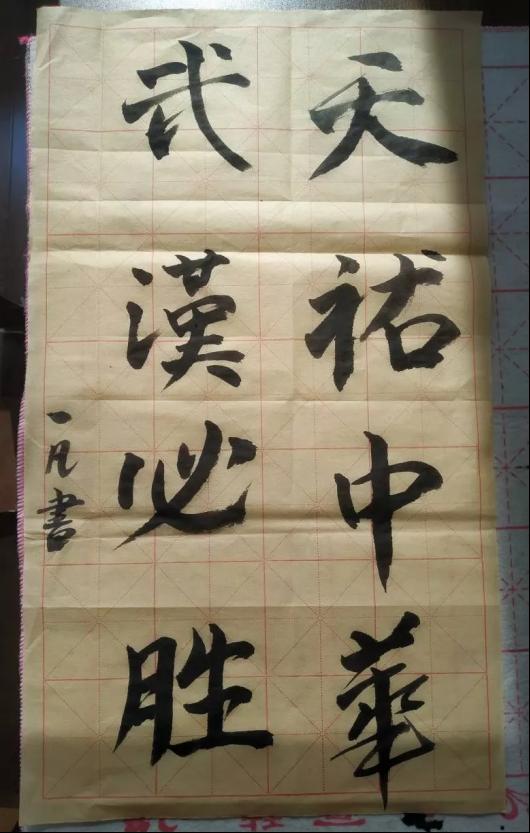 天祐中華
武漢必胜
一凡書